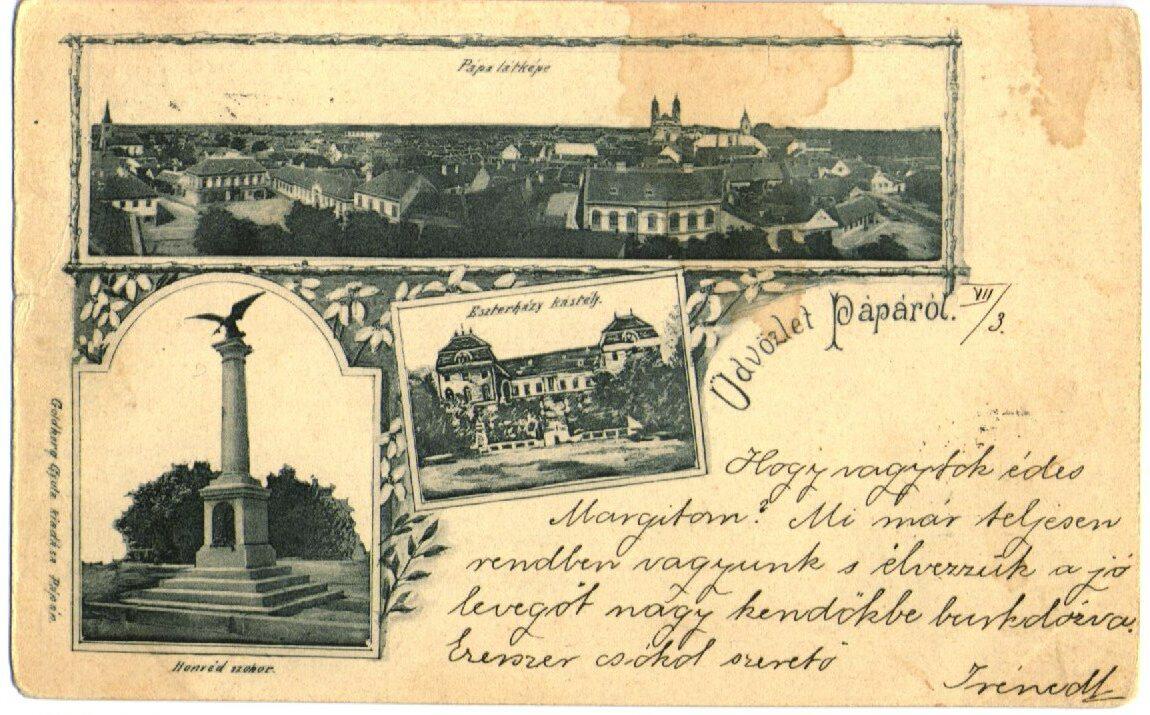 Pápa látképe
Eszterházy kastély.
Üdvözlet Pápáról.
VII/3.
Hogy vagytok édes
Margitom? Mi már teljesen
rendben vagyunk s élvezzük a jó
levegőt nagy kendőkbe burkolózva.
Ezerszer csókol szerető
Iréned
Honvéd szobor.
Goldberg Gyula kiadása Pápán.